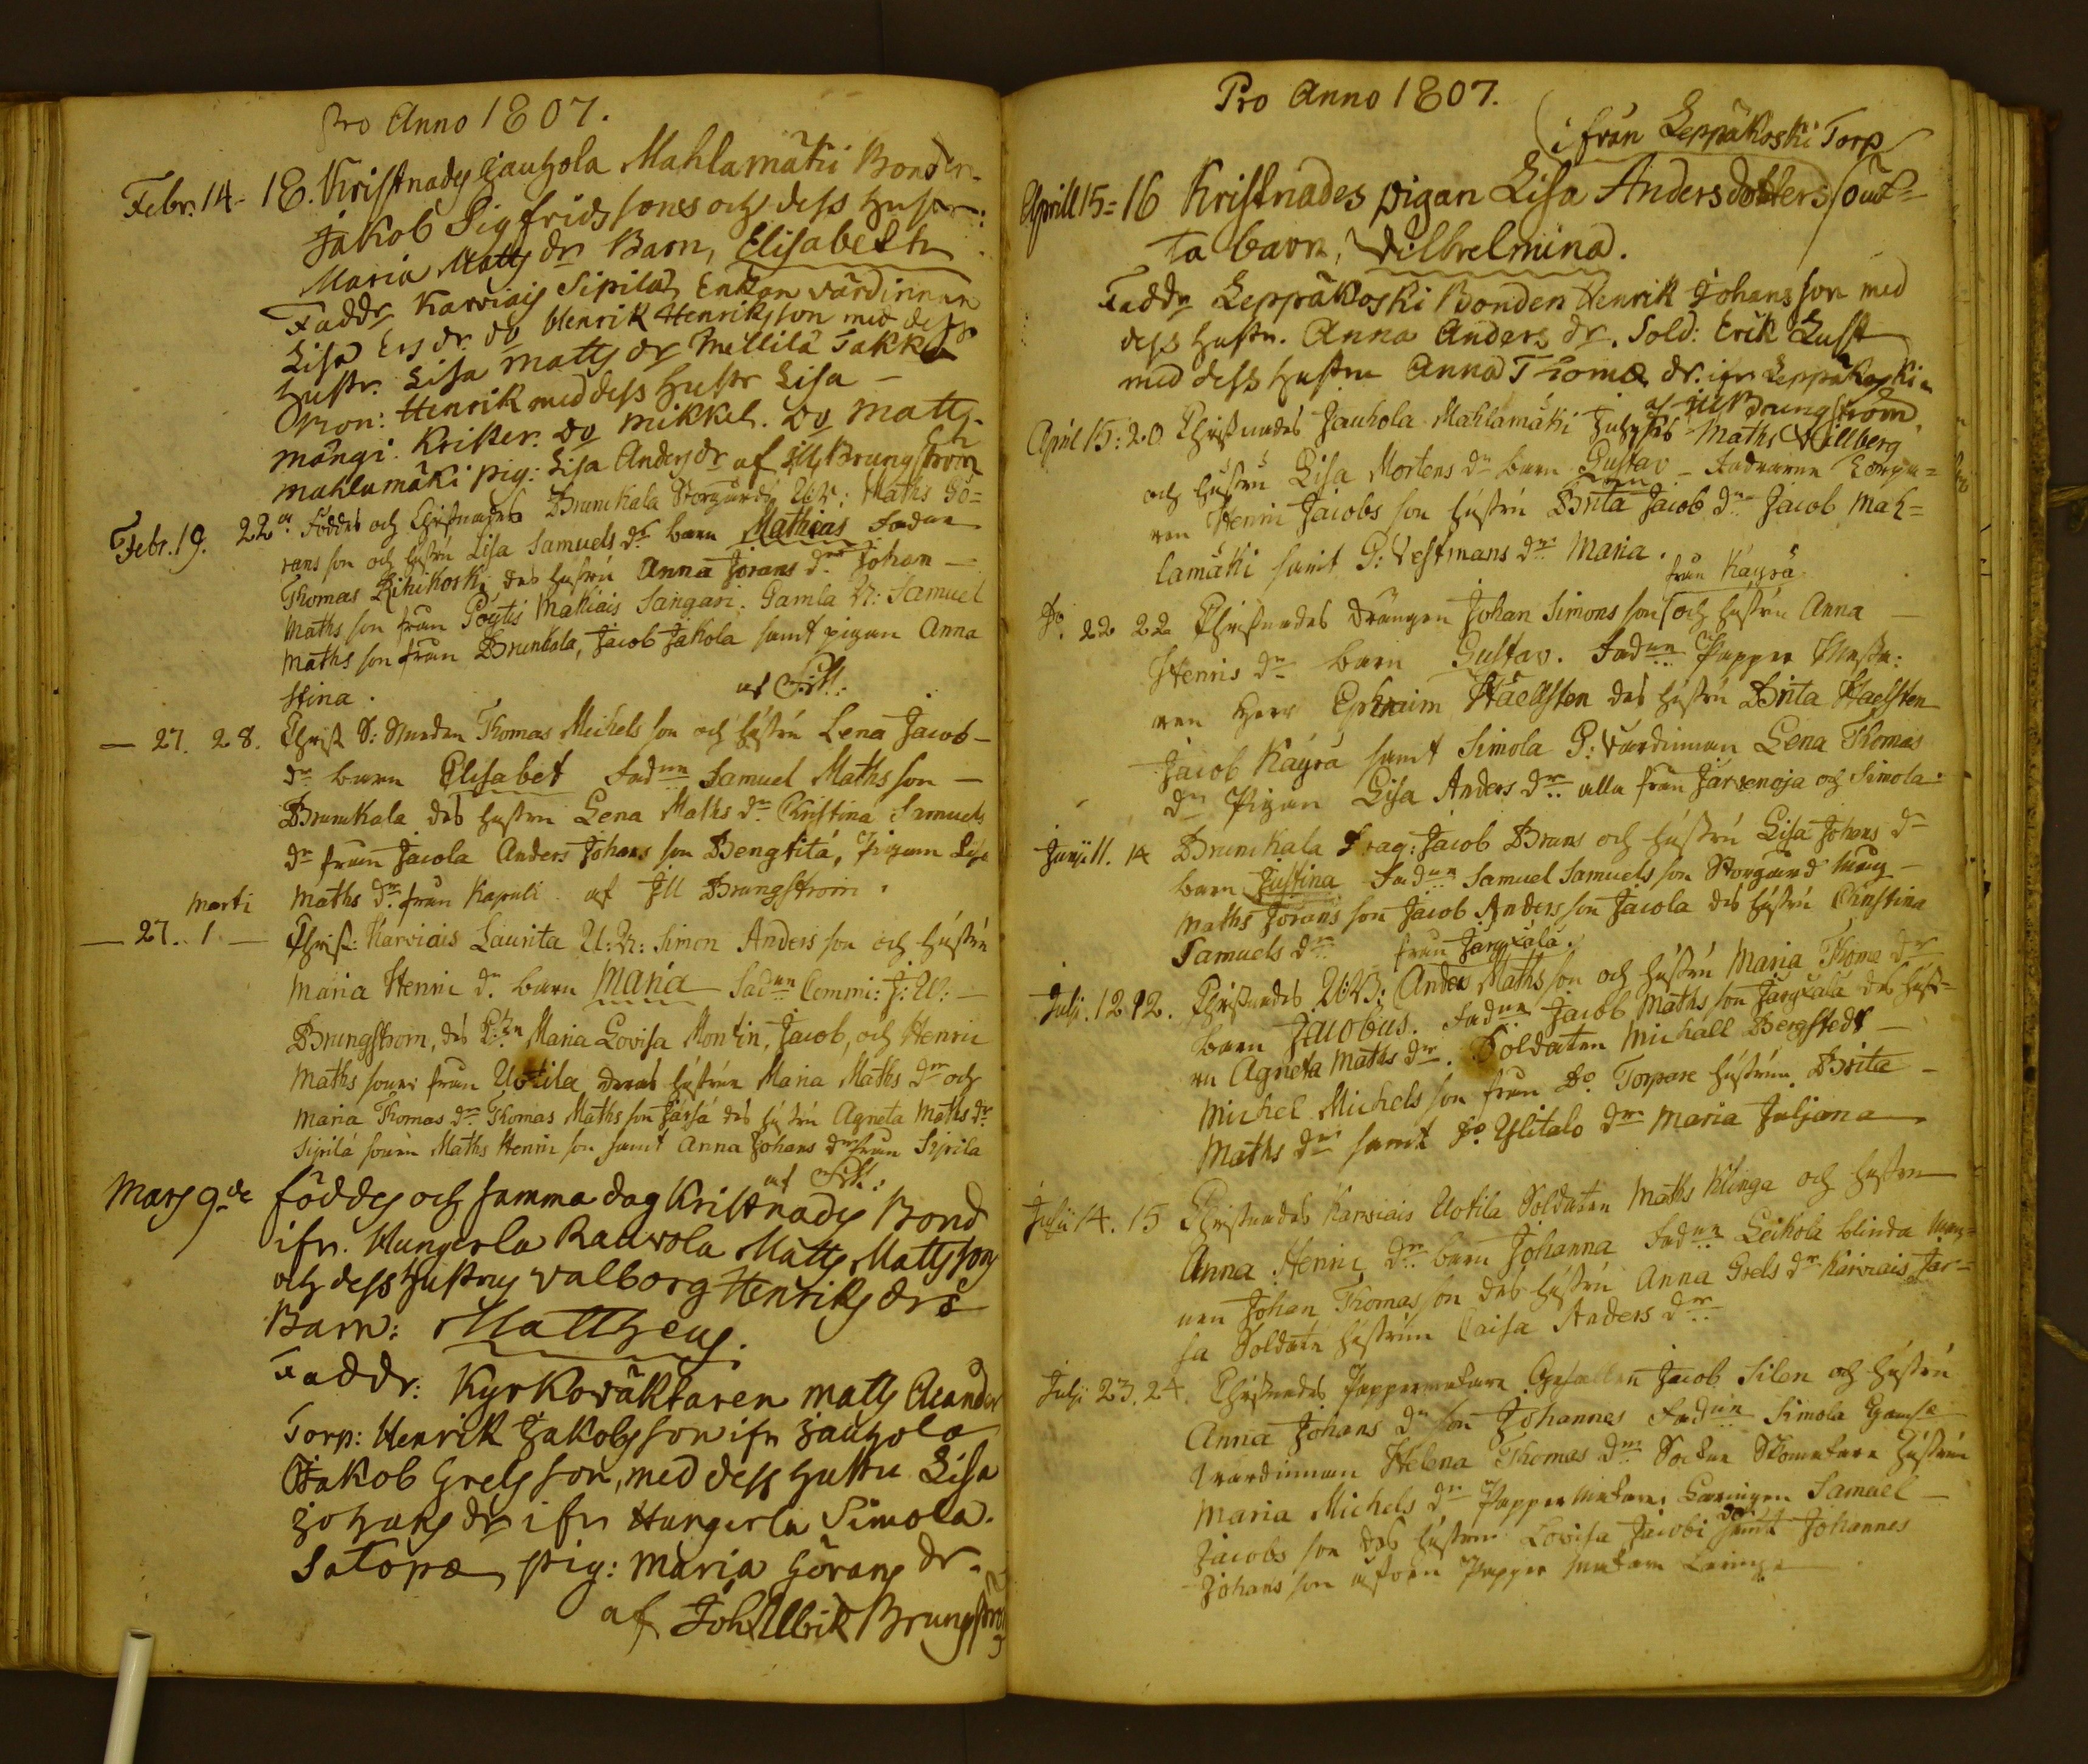 Pro Anno 1807.
Febr. 14 - 18. Kristnades Jauhola Mahlamäki Bonden
Jakob Sigfridssons och dess hustr:
Maria Matts dr Barn, Elisabeth
Faddr Karviais Sipilas Enkan värdinnan
Lisa Ers dr. do Henrik Henriksson med dess
hustr. Lisa Matts dr Mellilä Takku
Henrik med dess hustr Lisa -
Krister. do Mikkel. do Matts.
Mahlamäki pig: Lisa Anders dr af J:U: Brungström
Febr. 19. 22 Föddes och Christnades Brunkala Storgårds U:B: Maths Gö=
rans son och hustru Lisa Samuels dr barn Mathias Faddar
Thomas Rihikoski des hustru Anna Jörans dr Johan -
Maths son från Pöytis Makiais Sangari. Gamla B: Samuel
Maths son från Brunkala, Jacob Jakola samt pigan Anna
Stina.
- 27. 28. Christ S: Thomas Michels son och hustru Lena Jacob -
dr barn Elisabet Faddar Samuel Maths son -
Brunkala des hustru Lena Maths dr Christina Samuels
dr från Jacola Anders Johans son Bengtilä, Pigan Lisa
Maths dr från Kapuli af J:U Brungström.
Marti
- 27. 1 - Christ: Karviais Laurila U:B: Simon Anders son och hustru
Maria Henric dr. barn Maria Faddar Commi: J: U: -
Brungstrom, des Maria Lovisa Montin, Jacob, och Henric
Maths soner från Uotila deras hustrur Maria Maths dr och
Maria Thomas dr Thomas Maths son Järsä des hustru Agneta Maths dr
Sipilä sonen Maths Henric son samt Anna Johans dr från Sipila
Mars 9de föddes och samma dag Kristnades Bond
ifr. Hungerla Rauvola Matts Mattssons
och dess hustrus Valborg Henriks drs
Barn: Mattheus.
Faddr: Kyrkoväktaren Matts Aeander
Torp: Henrik Jakobsson ifr Jauhola
Jakob Grelsson, med dess hustru Lisa
Johans dr ifr Hungerla Simola.
Satopæ pig: Maria Görans dr.
af Joh Ulrik Brungström
Pro Anno 1807.
(ifrån Leppäkoski Torp
Aprill 15 = 16 Kristnades pigan Lisa Andersdotters / oäk=
ta barn, Vilhelmina.
Faddr Leppäkoski Bonden Henrik Johansson med
dess hustr. Anna Anders dr. Sold: Erik Lust
med dess hustru Anna Thomæ dr. ifr Leppäkoski.
af J:U Brungström.
April 15: 20 Christnades Jauhola Mahlamäki Maths Villberg
och hustru Lisa Mortens dr barn Gustav - Faddrarne Torpa=
ren Henric Jacobs son hustru Brita Jacob dr Jacob Mah=
lamäki samt G: Vestmans dr Maria.
från Käyrä
Do. 22 22 Christnades Drängen Johan Simons son och hustru Anna -
Henrics dr barn Gustav. Faddar Papper Mästa:
ren Herr Ephraim Hællsten des hustru Brita Hællsten
Jacob Käyrä samt Simola G: Värdinnan Lena Thomas
dr Pigan Lisa Anders dr. alla från Järvenoja och Simola.
Junii 11. 14 Brunkala Drag: Jacob Brans och hustru Lisa Johans dr
barn Justina Faddar Samuel Samuels son Storgård
Maths Jorans son Jacob Anders son Jacola des hustru Christina
Samuels dr.
från Jaryxälä.
Julii. 12 12. Christnades U:B: Anders Maths son och hustru Maria Thome dr
barn Jacobus. Faddar Jacob Maths son Jaryxälä des hust=
ru Agneta Maths dr. Soldaten Michall Bergstedt -
Michel Michels son från Do. Torpare hustrun Brita -
Maths dr samt Do. Ylitalo dr Maria Juliana
Julii 14. 15 Christnades Karviais Uotila Soldaten Maths Klinga och hustru
Anna Henric dr barn Johanna Faddar Leikola blinda man=
nen Johan Thomasson des hustru Anna Grels dr Karviais Jär=
sä Soldate hustrun Caisa Anders dr
Julii 23. 24. Christnades Pappermakare Gesællen Jacob Silen och hustru
Anna Johans dr son Johannes Faddar Simola Gamla
värdinnan Helena Thomas dr Socken Skomakare hustrun
Maria Michels dr Papper makare Læringen Samuel -
Jacobs son des hustru Lovisa Jacobi dr samt Johannes
Johans son Papper makare Læringe